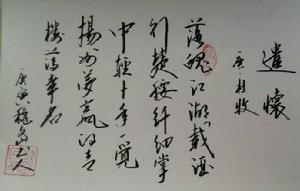 遣懷
唐·杜牧
落魄江湖載酒
行楚腰纤細掌
中輕十年一覺
揚州夢贏得青
樓薄幸名
庚寅 山人